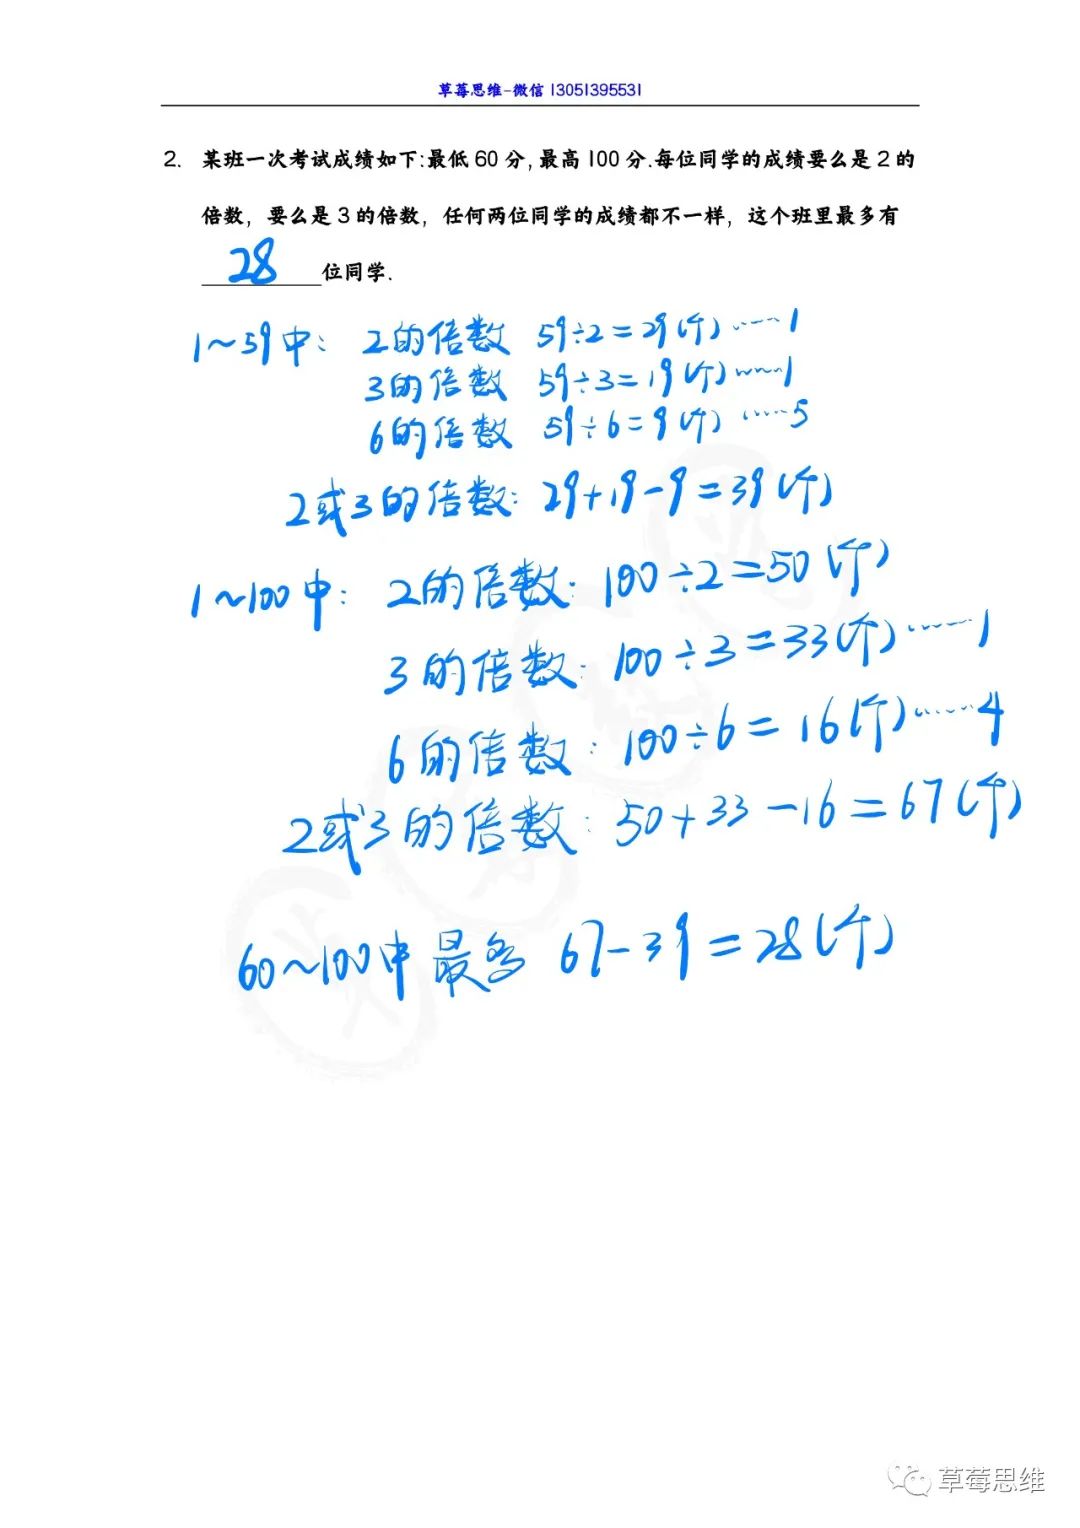 草莓思维-微信 13051395531
2. 某班一次考试成绩如下:最低 60 分, 最高 100 分.每位同学的成绩要么是 2 的
倍数，要么是 3 的倍数，任何两位同学的成绩都不一样，这个班里最多有
28 位同学.
1~59中： 2的倍数 59÷2=29(个)……1
3的倍数 59÷3=19(个)……1
6的倍数 59÷6=9(个)……5
2或3的倍数: 29+19-9=39(个)
1~100中: 2的倍数: 100÷2=50(个)
3的倍数: 100÷3=33(个)……1
6的倍数: 100÷6=16(个)……4
2或3的倍数: 50+33-16=67(个)
60~100中 最多 67-39=28(个)
草莓思维